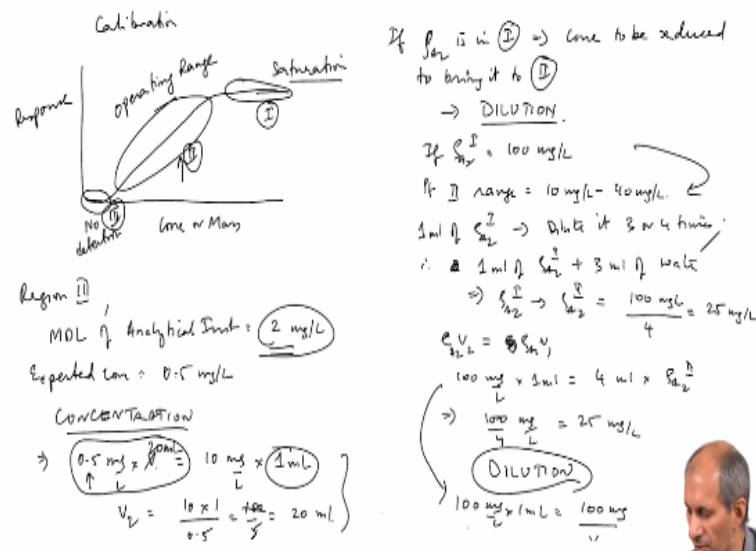 Calibration
Response
Operating Range
Saturation
I
II
No
detection
III
Conc or Mass
Region III
MDL of Analytical Inst = 2 mg/L
Expected conc = 0.5 mg/L
CONCENTRATION
⇒ 0.5 mg/L × 20 mL = 10 mg/L × 1 mL
V2 = 10 × 1 / 0.5 = 100/5 = 20 ml
If ρA2 is in I ⇒ conc to be reduced
to bring it to II
→ DILUTION.
If ρA2 I = 100 mg/L
If II range = 10 mg/L - 40 mg/L
1 ml of ρA2 I → Dilute it 3 or 4 times
∴ 1 ml of ρA2 I + 3 ml of water
⇒ ρA2 I → ρA2 II = 100 mg/L / 4 = 25 mg/L
ρA2 V2 = ρA1 V1
100 mg/L × 1 ml = 4 ml × ρA2 II
⇒ 100/4 mg/L = 25 mg/L
DILUTION
100 mg/L × 1 mL = 100 mg